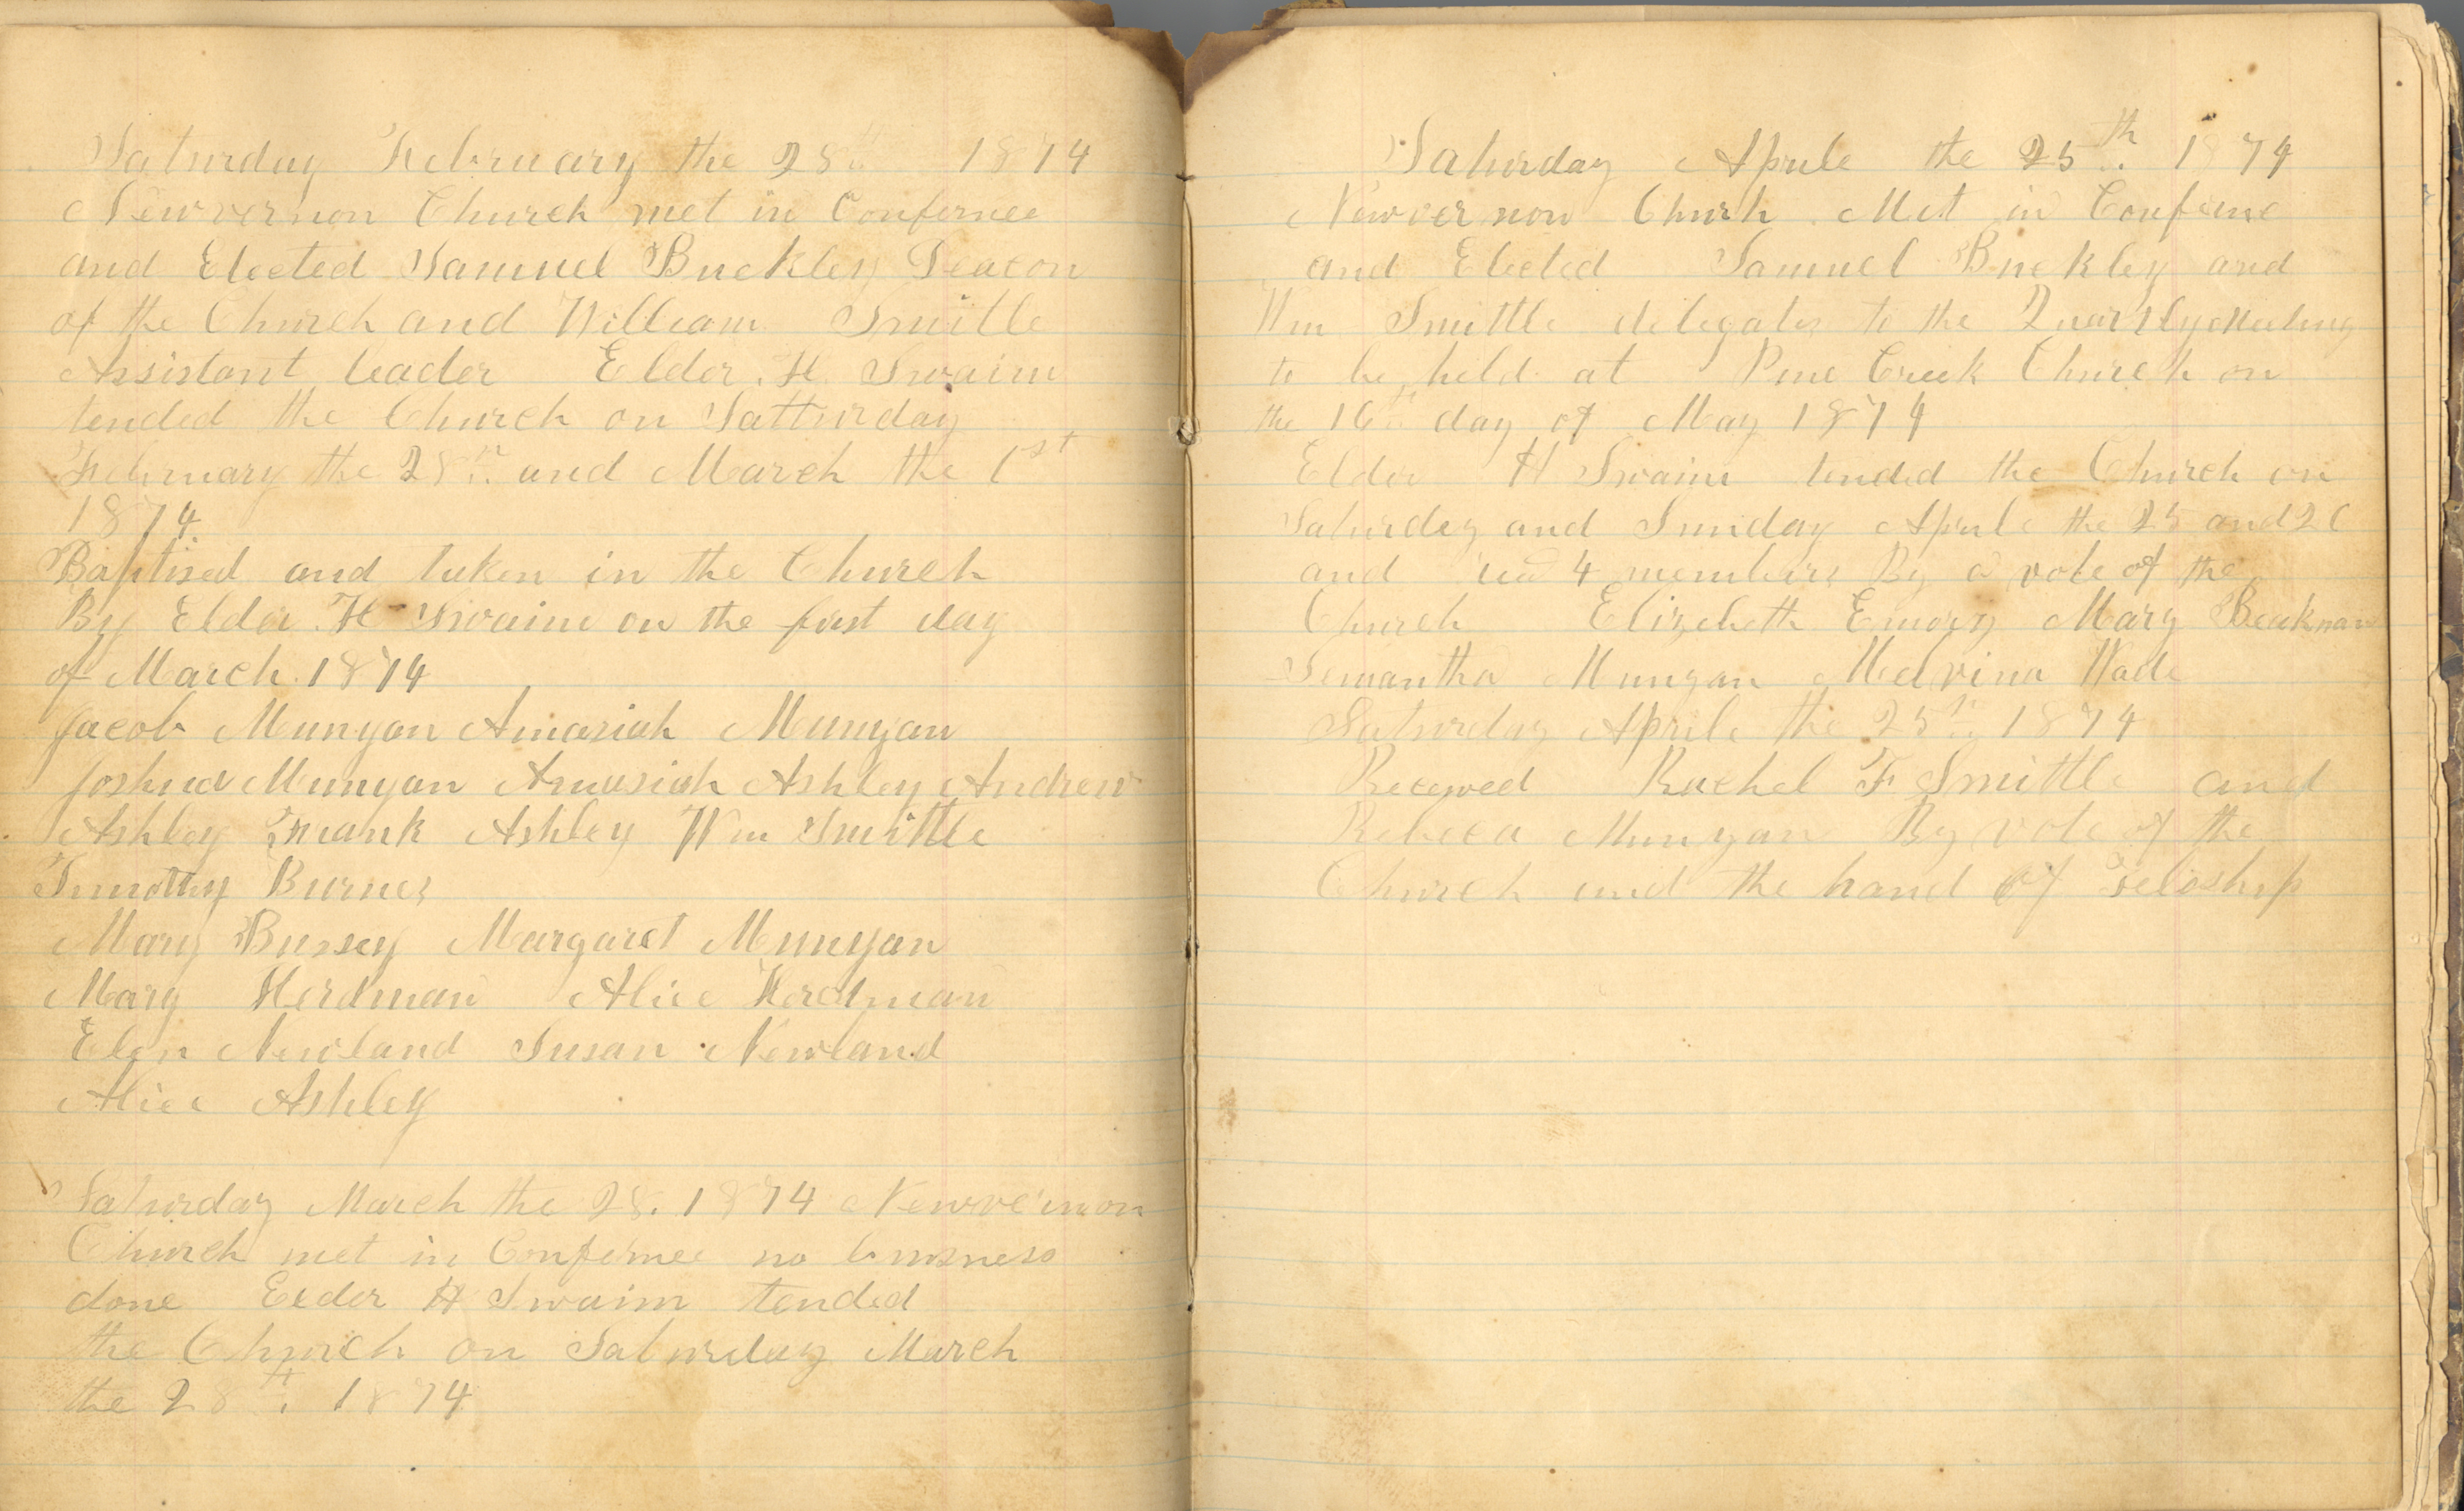 Saturday February the 28th 1874
Newvernon Church met in Confernce
and Elected Samuel Buckley Deacon
of the Church and William Smittle
Assistant leader Elder H Swaim
tended the Church on Satturday
February the 28th and March the 1st
1874
Baptised and taken in the Church
By Elder H Swaim on the first day
of March 1874
Jacob Munyan Amasiah Munyan
Joshua Munyan Amasiah Ashley Andrew
Ashley Frank Ashley Wm Smittle
Timothy Burnes
Mary Bussey Margaret Munyan
Mary Herdman Alice Herdman
Elen Newland Susan Newland
Alice Ashley
Saturday March the 28. 1874 Newvernon
Church met in Confernce no buisness
done Elder H Swaim tended
the Church on Saturday March
the 28th 1874
Saturday Aprile the 25th 1874
Newvernon Church Met in
and Elected Samuel Buckley and
Wm Smittle delegates to the Quartlymeeting
to be held at Pine Creek Church on
the 16th day of May 1874
Elder H Swaim tended the Church on
Saturday and Sunday Aprile the 25 and 26
and 4 members By a vote of the
Church Elizebeth Emory Mary
Semantha Munyan Melvina Wade
Saturday Aprile the 25th 1874
Received Rachel F Smittle and
Rebeca Munyan By vote of the
Church and the hand of feloship